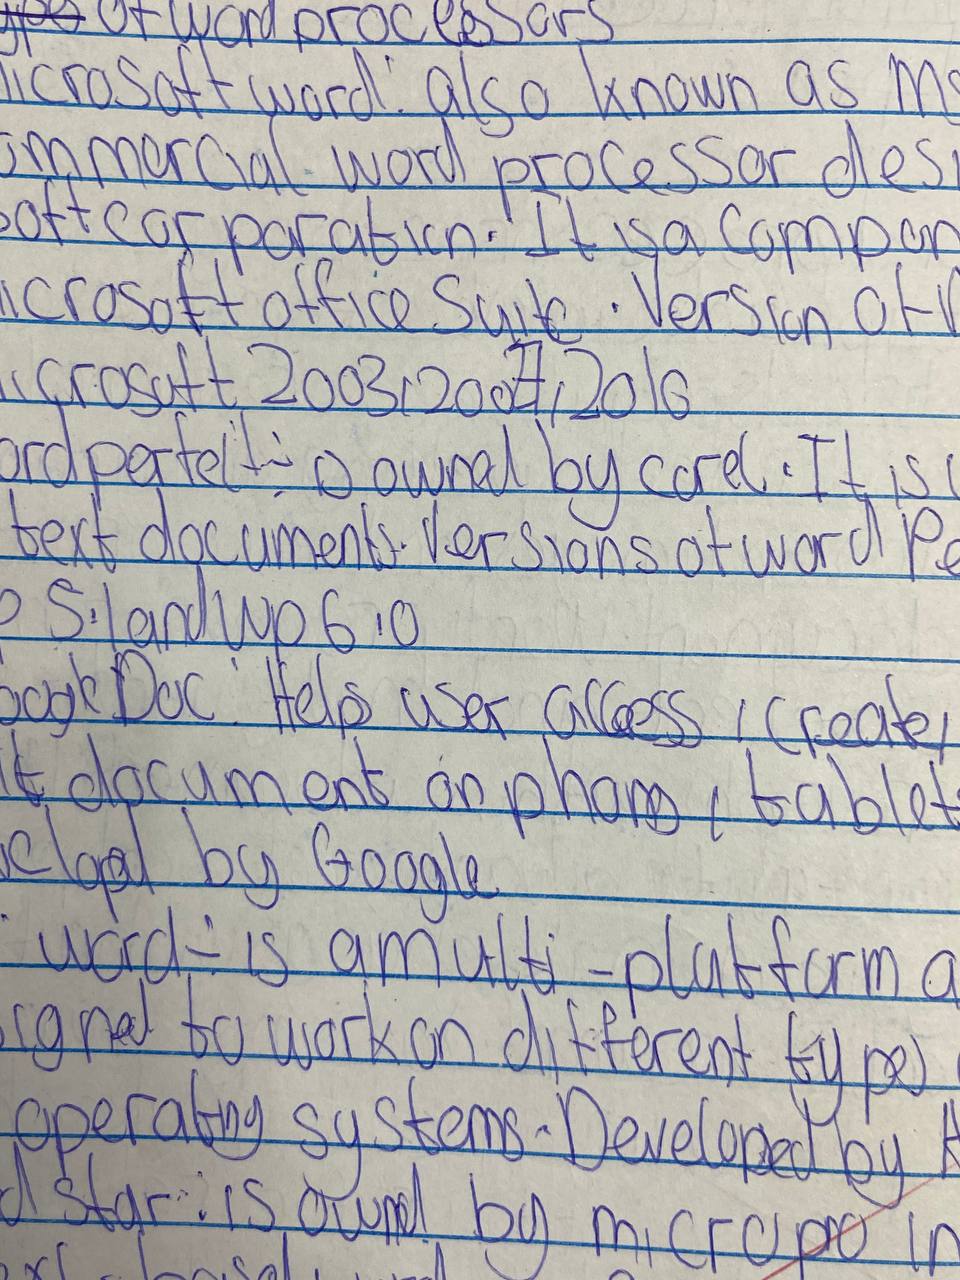 of word processors
icrosoft word: also known as Ms
ommercial word processor desi
oft corporation. It is a compon
icrosoft office Suite. Version of
icrosoft 2003, 2007, 2016
ord perfect:- owned by corel. It is
text documents. Versions of word Pe
5.1 and Wp 6.0
oogle Doc: Help user access, create,
it document on phone, tablet
eloped by Google
word:- is a multi-platform a
igned to work on different types
operating systems. Developed by A
d star: is owned by micropro in